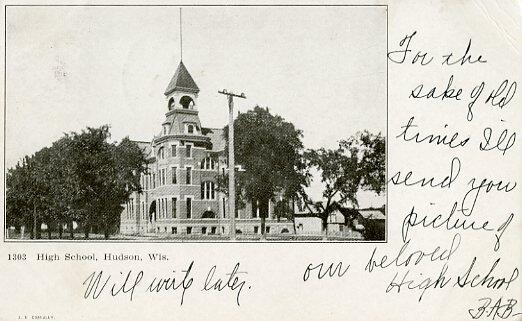 For the
sake of old
times Ill
send you
picture of
our beloved
High School
F.A.B.
1303 High School, Hudson, Wis.
Will write later.